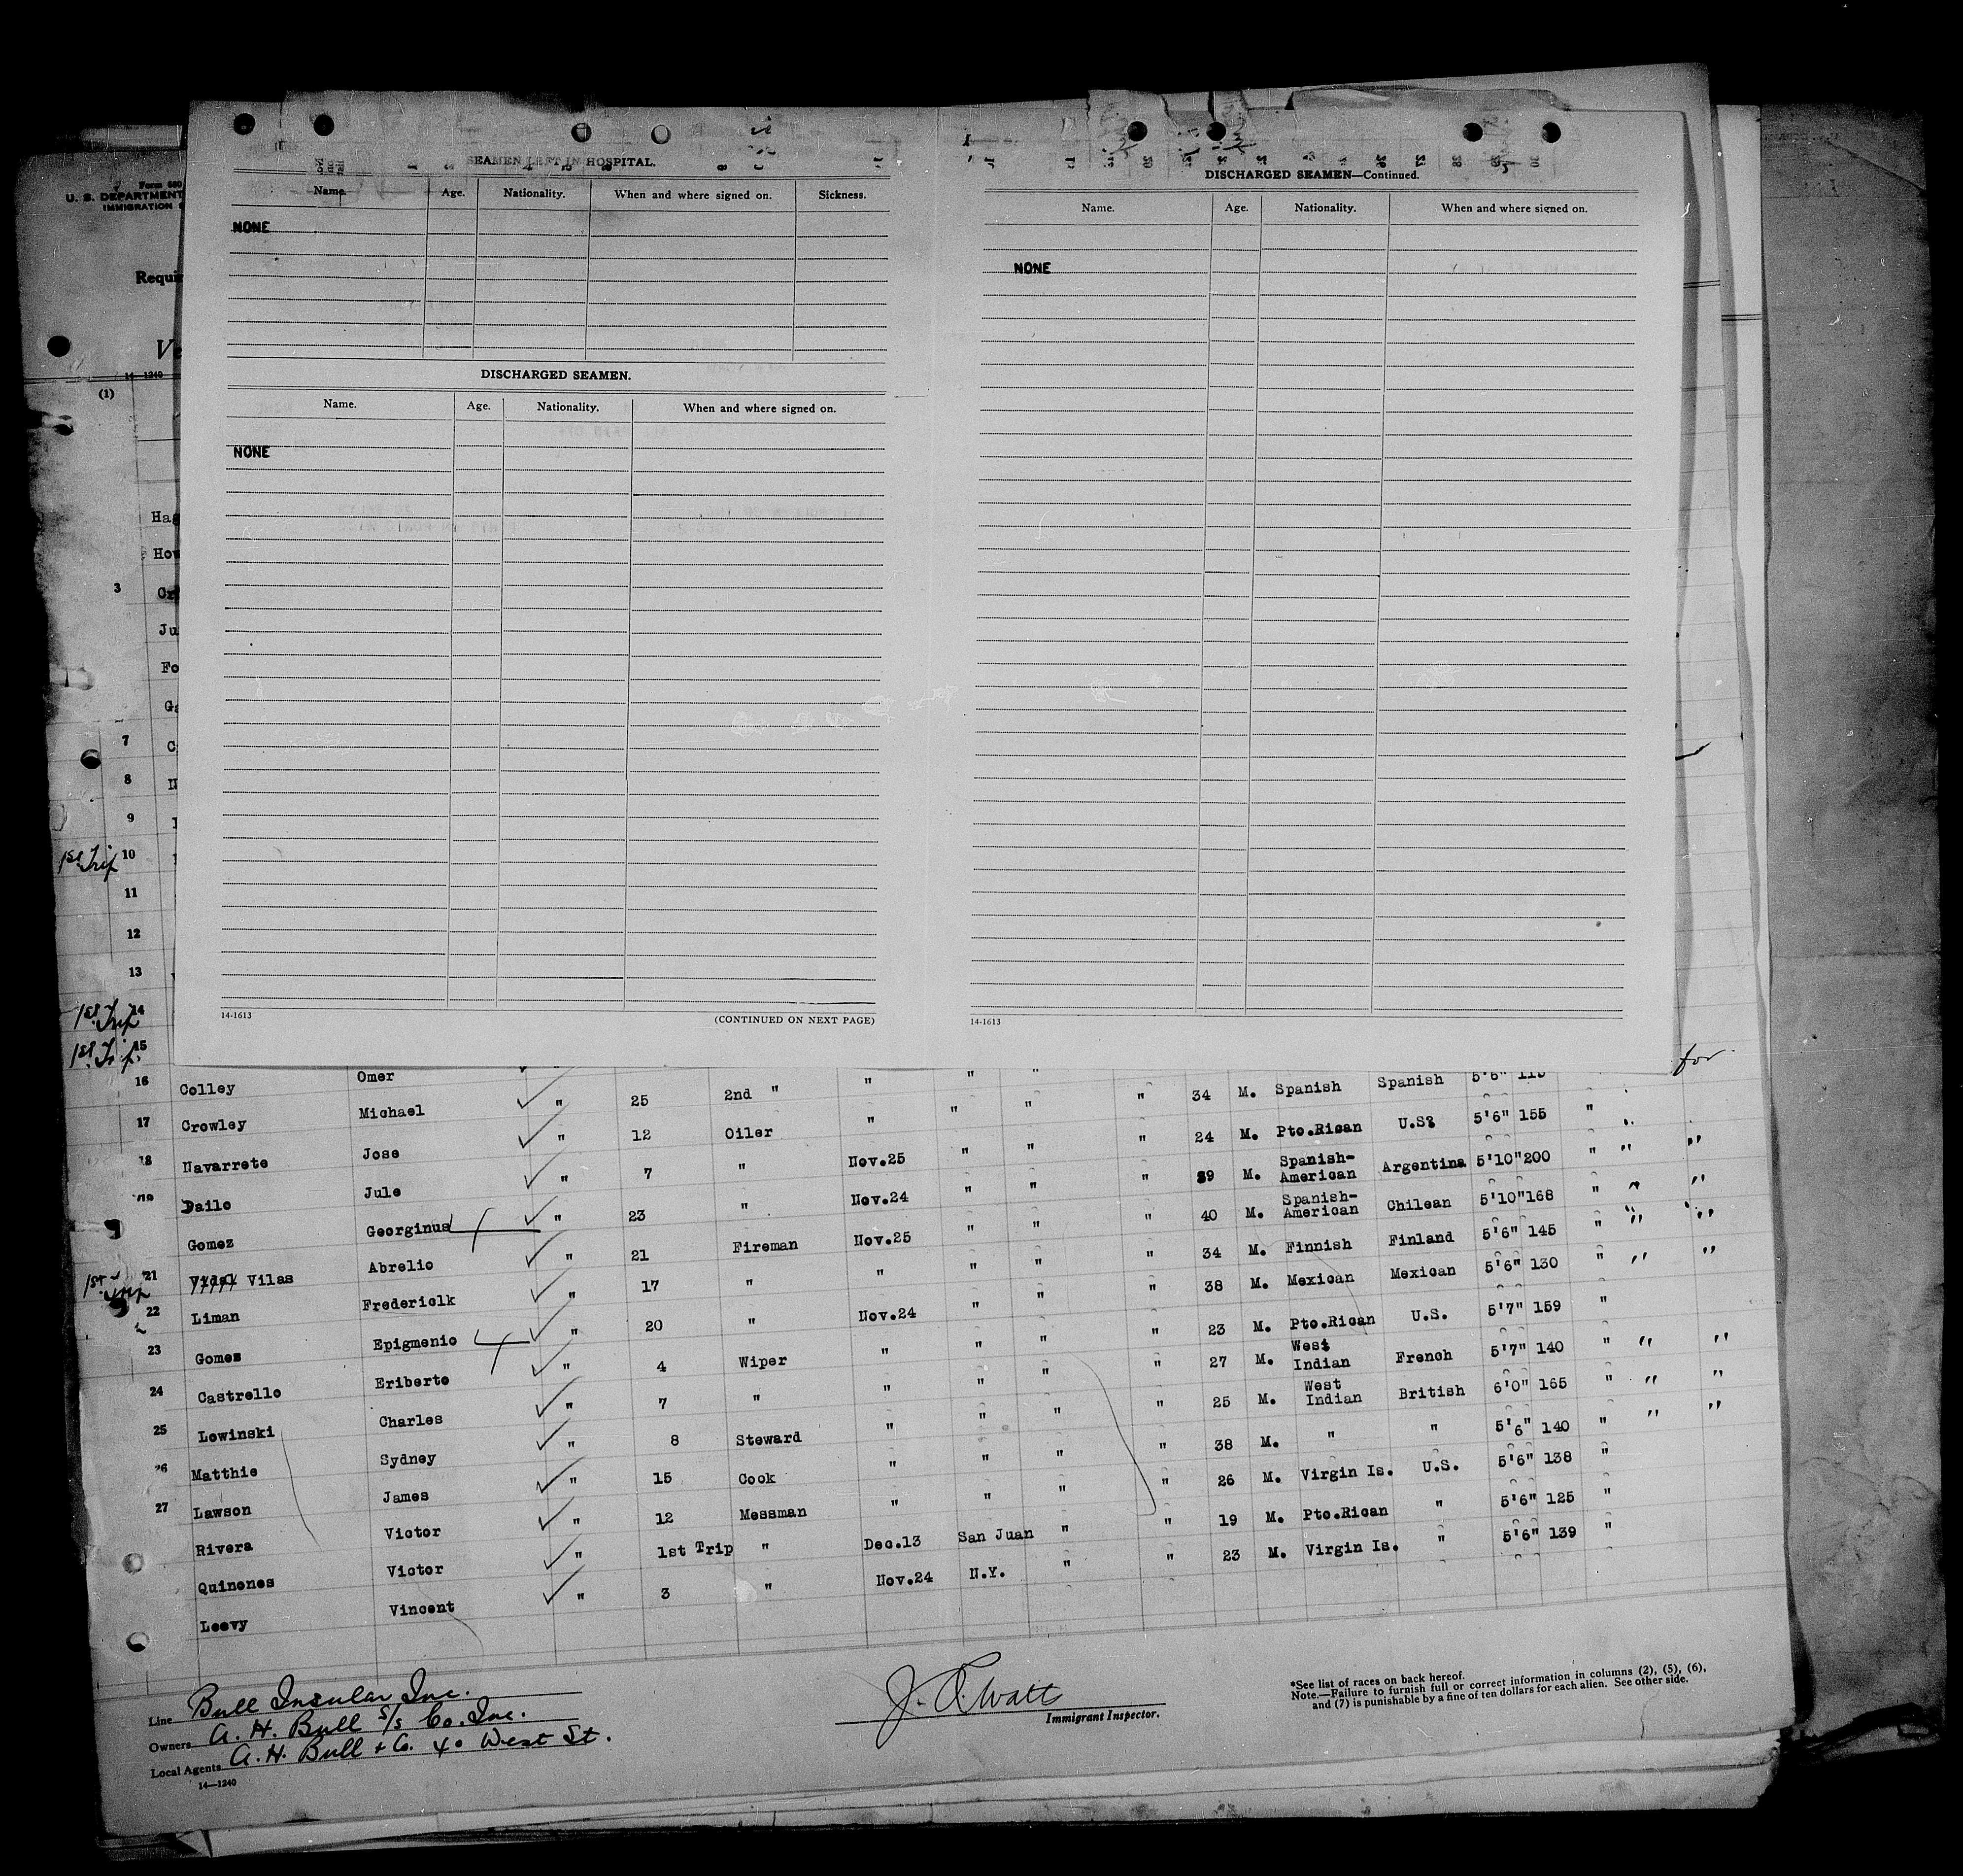 SEAMEN LEFT IN HOSPITAL.
Name. Age. Nationality. When and where signed on. Sickness.
NONE
DISCHARGED SEAMEN.
Name. Age. Nationality. When and where signed on.
NONE
14-1613 (CONTINUED ON NEXT PAGE)
DISCHARGED SEAMEN—Continued.
Name. Age. Nationality. When and where signed on.
NONE
14-1613
Form 680
U. S. DEPARTMENT
IMMIGRATION
Requi
Ve
14—1240
(1)
Hag
How
3 Cr
Ju
Fo
Ga
7 C
8
9
1st Trip 10
11
12
13
1st Trip 14
1st Trip 15
for
16 Colley Omer
17 Crowley Michael " 25 2nd " " " " " 34 M. Spanish Spanish 5'6" 115
18 Navarrete Jose " 12 Oiler " " " " 24 M. Pto.Rican U.S. 5'6" 155 "
19 Dailo Jule " 7 " Nov.25 " " " 39 M. Spanish-American Argentina 5'10" 200 " " "
Gomez Georginus " 23 " Nov.24 " " " 40 M. Spanish-American Chilean 5'10" 168 " " "
1st Trip 21 Vilas Abrelio " 21 Fireman Nov.25 " " " 34 M. Finnish Finland 5'6" 145 " " "
22 Liman Fredericlk " 17 " " " " " 38 M. Mexican Mexican 5'6" 130 " " "
23 Gomes Epigmenio " 20 " Nov.24 " " " 23 M. Pto.Rican U.S. 5'7" 159 "
24 Castrello Eriberto " 4 Wiper " " " " 27 M. West Indian French 5'7" 140 " " "
25 Lowinski Charles " 7 " " " " " 25 M. West Indian British 6'0" 165 " " "
26 Matthie Sydney " 8 Steward " " " " 38 M. " " 5'6" 140 " " "
27 Lawson James " 15 Cook " " " " 26 M. Virgin Is. U.S. 5'6" 138 "
Rivera Victor " 12 Messman " " " " 19 M. Pto.Rican " 5'6" 125 "
Quinones Victor " 1st Trip " Dec.13 San Juan " " 23 M. Virgin Is. " 5'6" 139 "
Leevy Vincent " 3 " Nov.24 N.Y. "
Line Bull Insular Inc.
Owners A. H. Bull S/S Co. Inc.
Local Agents A. H. Bull & Co. 40 West St.
14—1240
J. A. Watt
Immigrant Inspector.
*See list of races on back hereof.
Note.—Failure to furnish full or correct information in columns (2), (5), (6),
and (7) is punishable by a fine of ten dollars for each alien. See other side.